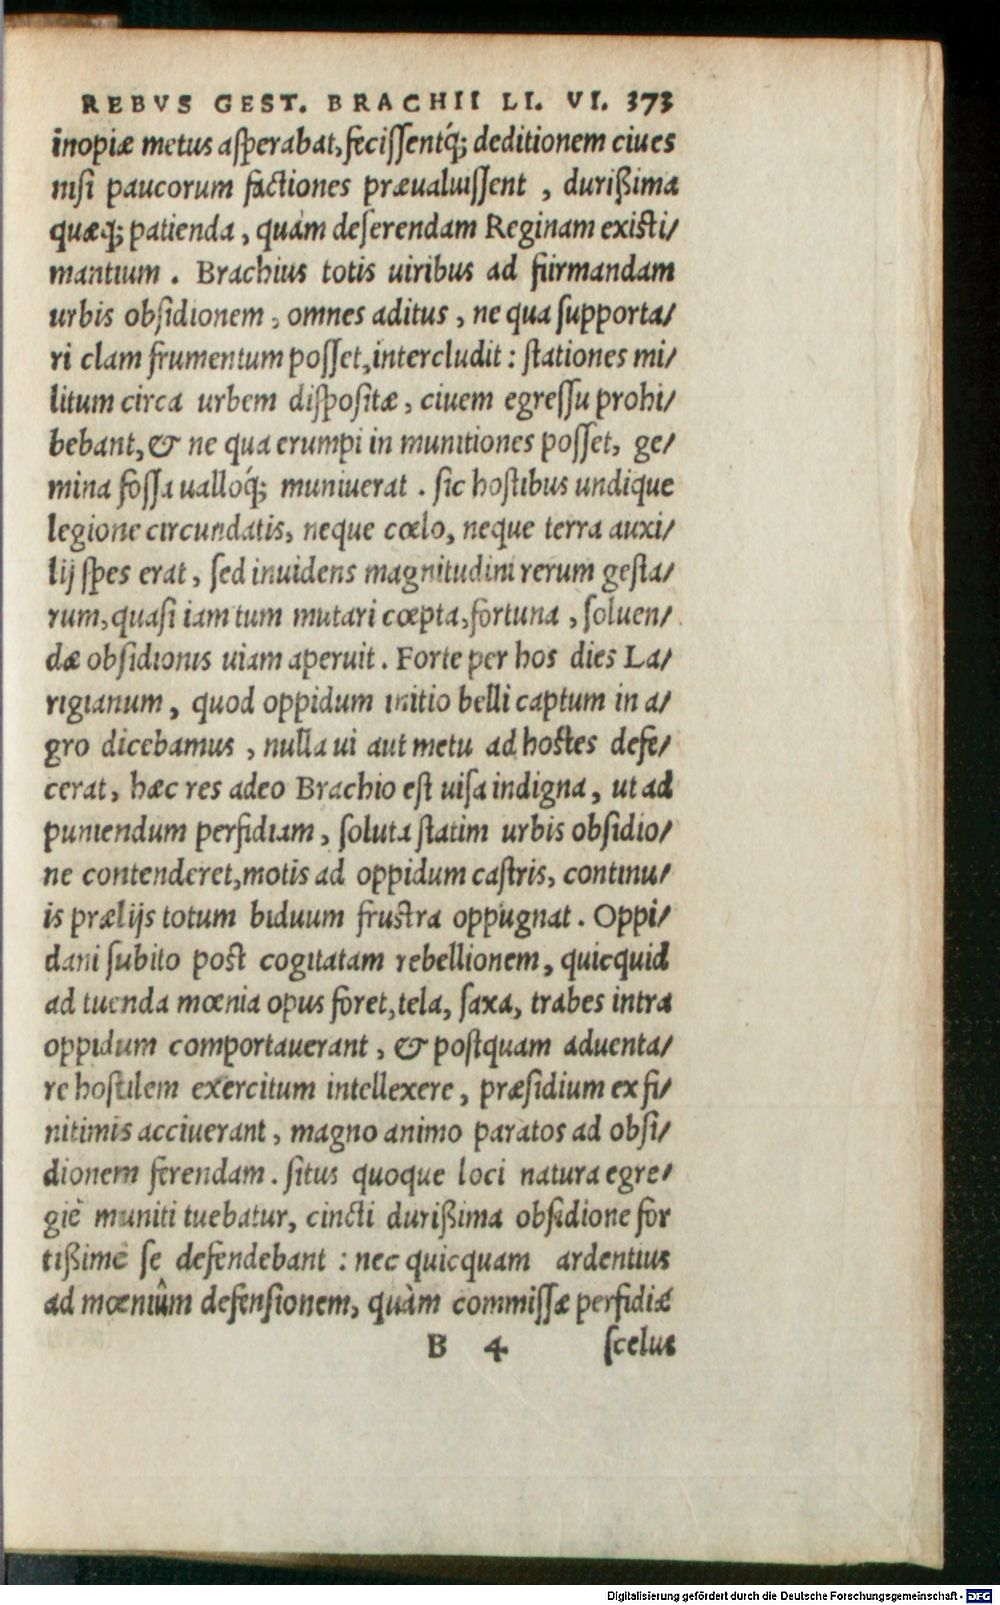 REBVS GEST. BRACHII LI. VI. 373
inopiæ metus asperabat, fecissentq́; deditionem ciues
nisi paucorum factiones præualuissent , durißima
quæq; patienda , quàm deserendam Reginam existi/
mantium . Brachius totis uiribus ad fiirmandam
urbis obsidionem , omnes aditus , ne qua supporta/
ri clam frumentum posset, intercludit : stationes mi/
litum circa urbem dispositæ , ciuem egressu prohi/
bebant, & ne qua erumpi in munitiones posset, ge/
mina fossa ualloq́; muniuerat . sic hostibus undique
legione circundatis, neque cœlo, neque terra auxi/
lij spes erat , sed inuidens magnitudini rerum gesta/
rum, quasi iam tum mutari cœpta, fortuna , soluen/
dæ obsidionis uiam aperuit . Forte per hos dies La/
rigianum , quod oppidum initio belli captum in a/
gro dicebamus , nulla ui aut metu ad hostes defe/
cerat, hæc res adeo Brachio est uisa indigna , ut ad
puniendum perfidiam , soluta statim urbis obsidio/
ne contenderet, motis ad oppidum castris, continu/
is prælijs totum biduum frustra oppugnat . Oppi/
dani subito post cogitatam rebellionem , quicquid
ad tuenda mœnia opus foret, tela, saxa, trabes intra
oppidum comportauerant , & postquam aduenta/
re hostilem exercitum intellexere , præsidium ex fi/
nitimis acciuerant , magno animo paratos ad obsi/
dionem ferendam . situs quoque loci natura egre/
giè muniti tuebatur, cincti durißima obsidione for
tißimè se defendebant : nec quicquam ardentius
ad mœniûm defensionem, quàm commissæ perfidiæ
B 4 scelus
Digitalisierung gefördert durch die Deutsche Forschungsgemeinschaft - DFG